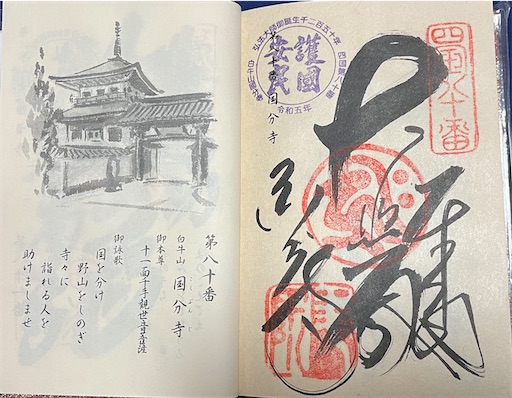 四国八十番
弘法大師御誕生千二百五十年
四国第八十番
護國
安民
令和五年
国分寺
第八十番
白牛山 国分寺
御本尊
十一面千手観世音菩薩
御詠歌
国を分け
野山をしのぎ
寺々に
詣れる人を
助けましませ